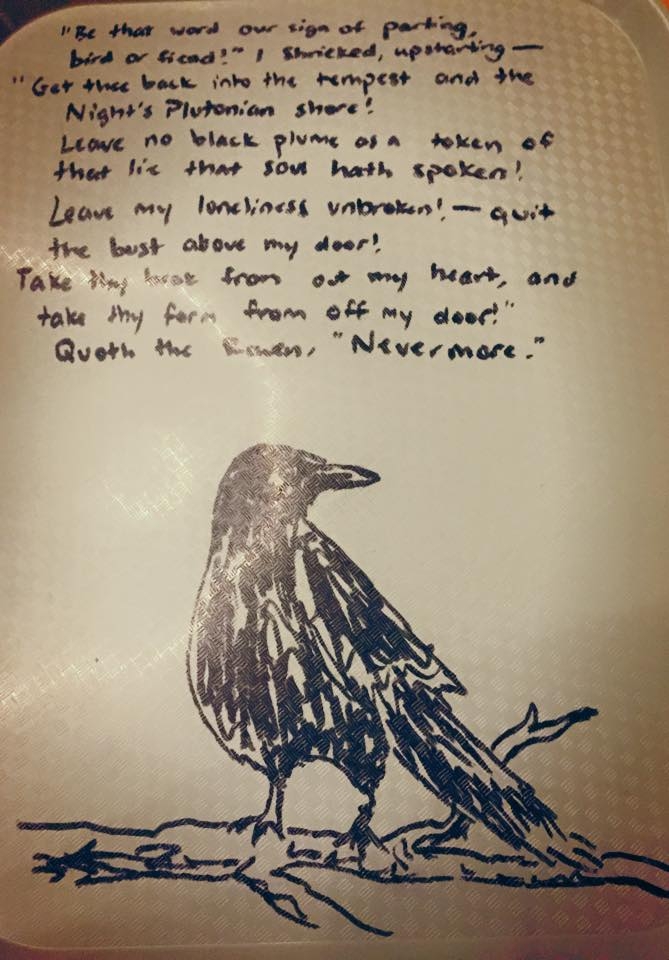 "Be that word our sign of parting,
bird or fiend!" I shrieked, upstarting —
"Get thee back into the tempest and the
Night's Plutonian shore!
Leave no black plume as a token of
that lie that soul hath spoken!
Leave my loneliness unbroken! — quit
the bust above my door!
Take thy beak from out my heart, and
take thy form from off my door!"
Quoth the Raven, "Nevermore."